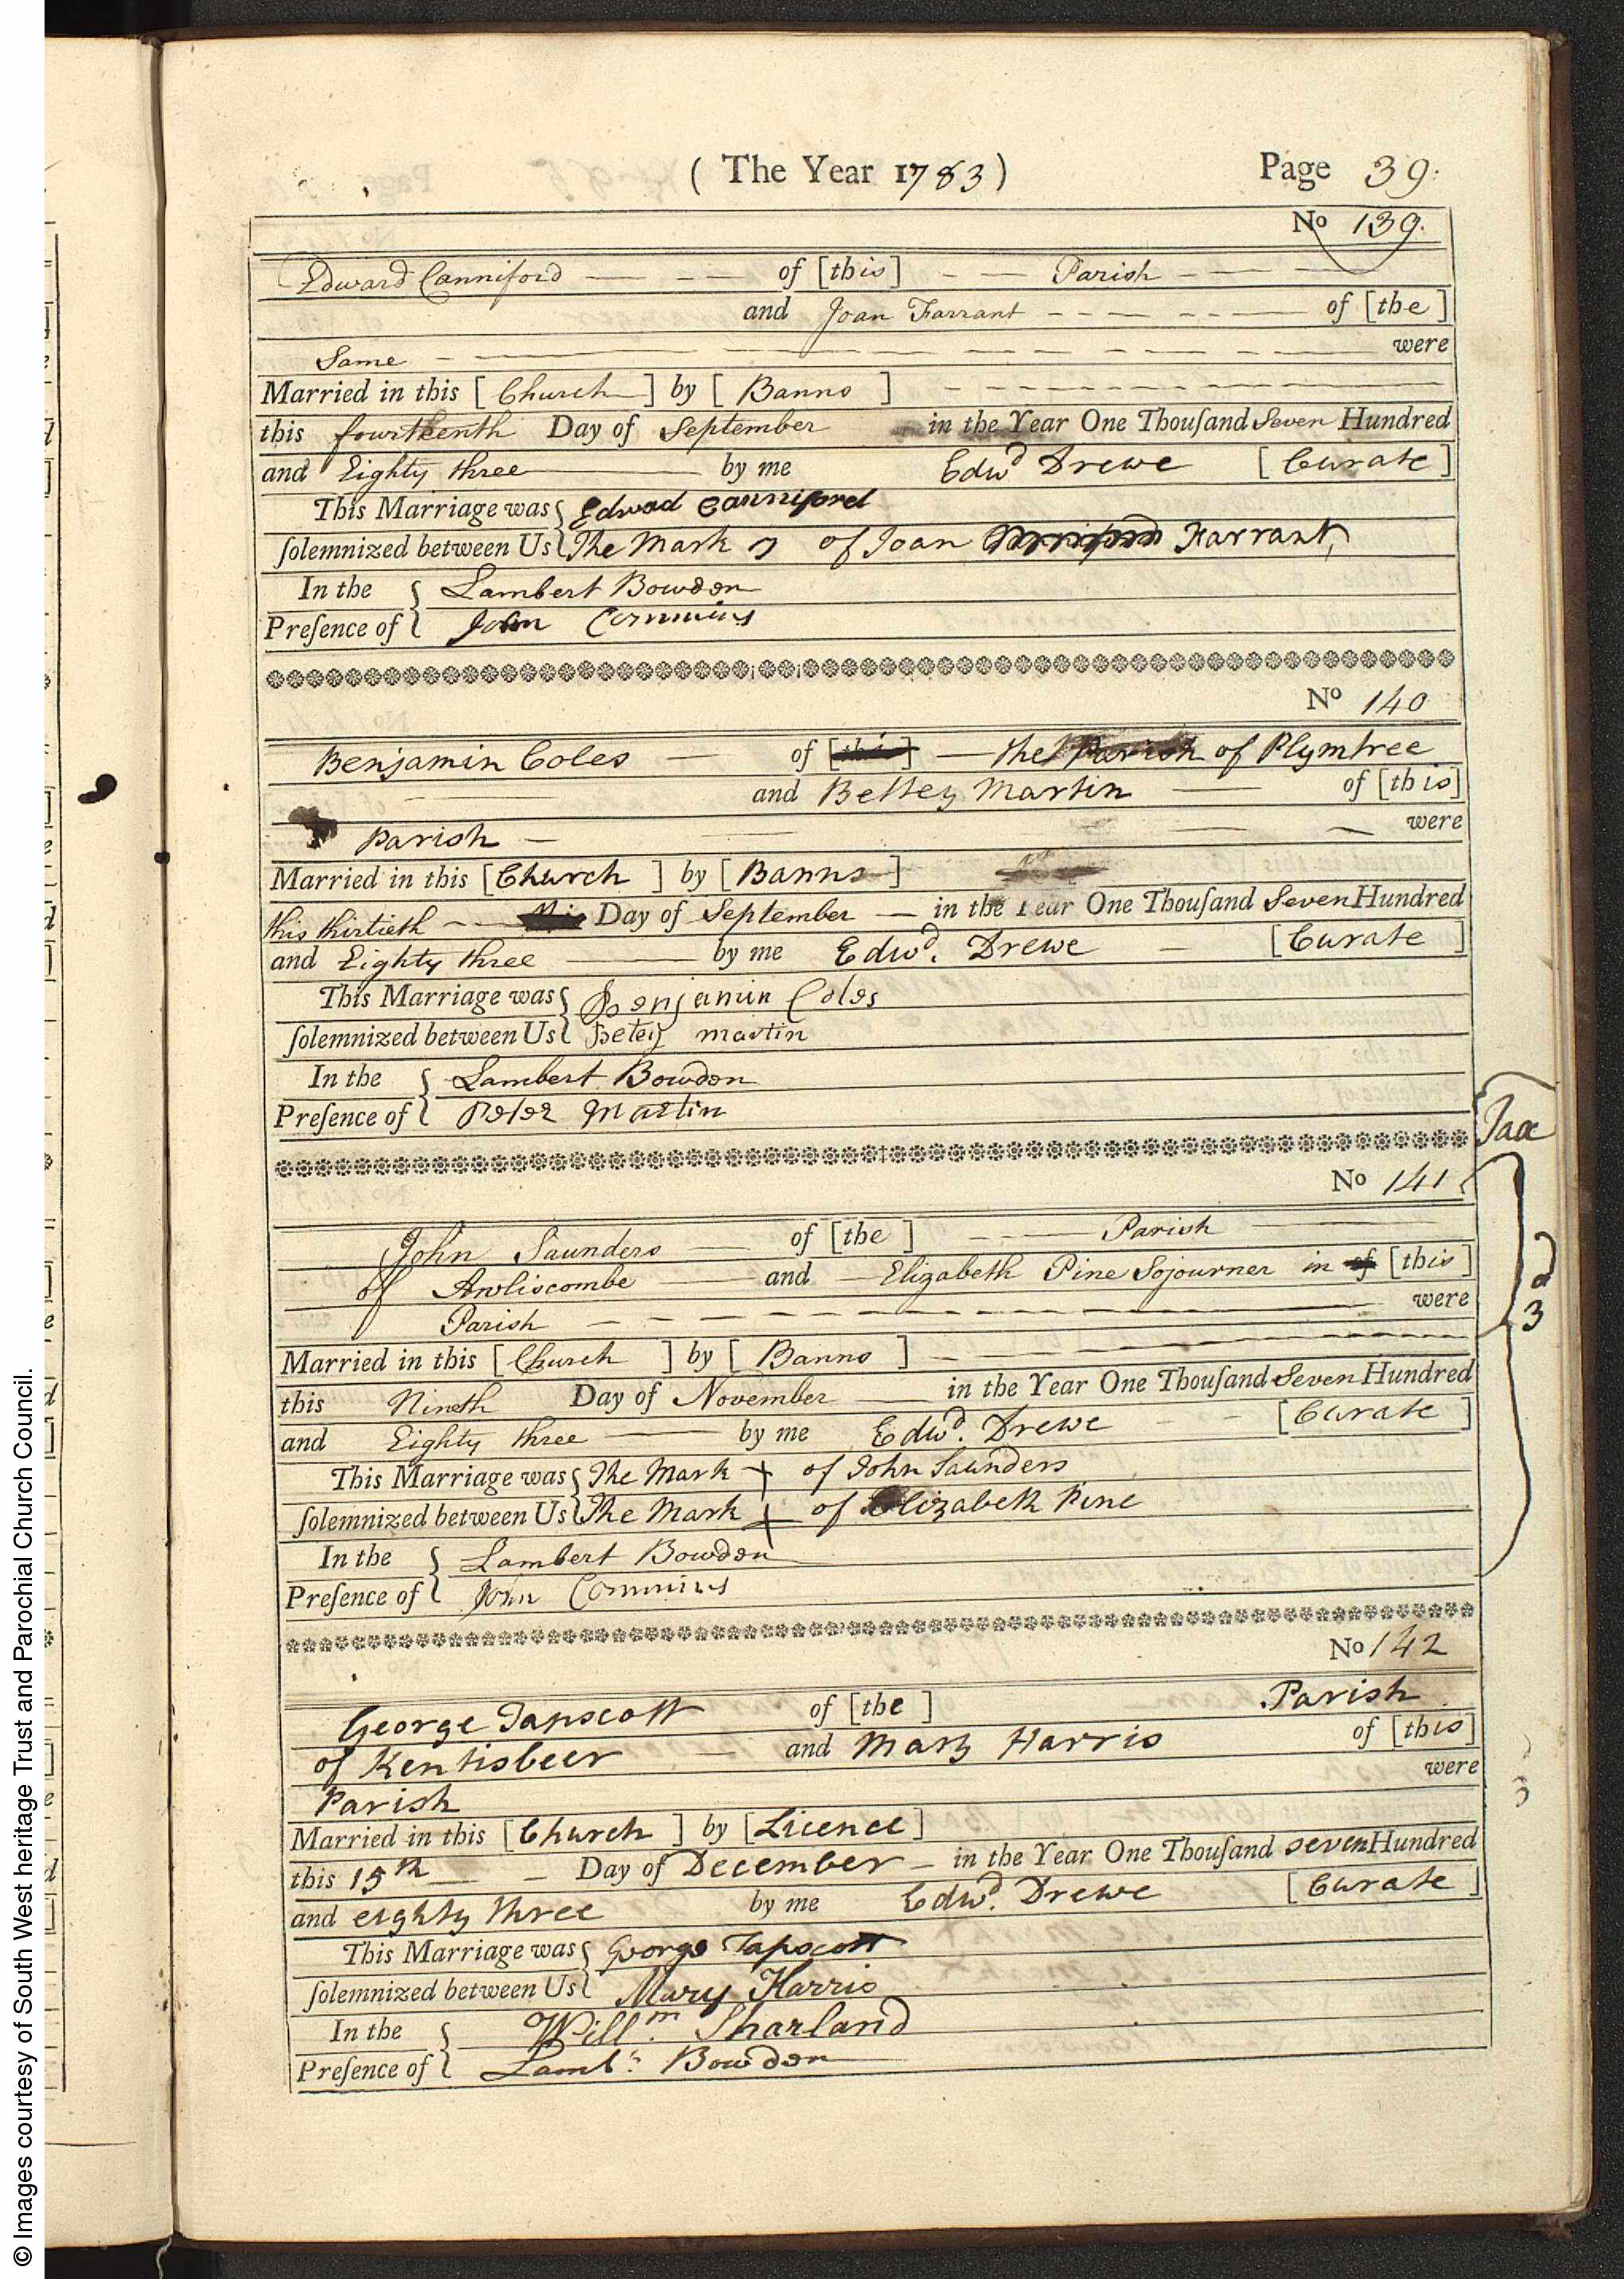 ( The Year 1783 ) Page 39.
No 139.
Edward Canniford of [this] Parish
and Joan Farrant of [the]
Same were
Married in this [Church] by [Banns]
this fourteenth Day of September in the Year One Thouſand Seven Hundred
and Eighty three by me Edwd Drewe [Curate]
This Marriage was Edwad Canniford
ſolemnized between Us The Mark of Joan Farrant
In the Lambert Bowdon
Preſence of John Commins
No 140
Benjamin Coles of [this] the Parish of Plymtree
and Bettey Martin of [this]
Parish were
Married in this [Church] by [Banns]
this thirtieth Day of September in the Year One Thouſand Seven Hundred
and Eighty three by me Edwd. Drewe [Curate]
This Marriage was Benjamin Coles
ſolemnized between Us betey martin
In the Lambert Bowdon
Preſence of Peter Martin
Tax
No 141
John Saunders of [the] Parish
of Awliscombe and Elizabeth Pine Sojourner in of [this]
Parish were
3d
Married in this [Church] by [Banns]
this Ninth Day of November in the Year One Thouſand Seven Hundred
and Eighty three by me Edwd. Drewe [Curate]
This Marriage was The Mark + of John Saunders
ſolemnized between Us The Mark + of Elizabeth Pine
In the Lambert Bowdon
Preſence of John Commins
No 142
George Tapscott of [the] Parish
of Kentisbeer and Mary Harris of [this]
Parish were
3
Married in this [Church] by [Licence]
this 15th Day of December in the Year One Thouſand seven Hundred
and eighty three by me Edwd. Drewe [Curate]
This Marriage was George Tapscott
ſolemnized between Us Mary Harris
In the Willm. Sharland
Preſence of Lambt: Bowdon
© Images courtesy of South West heritage Trust and Parochial Church Council.